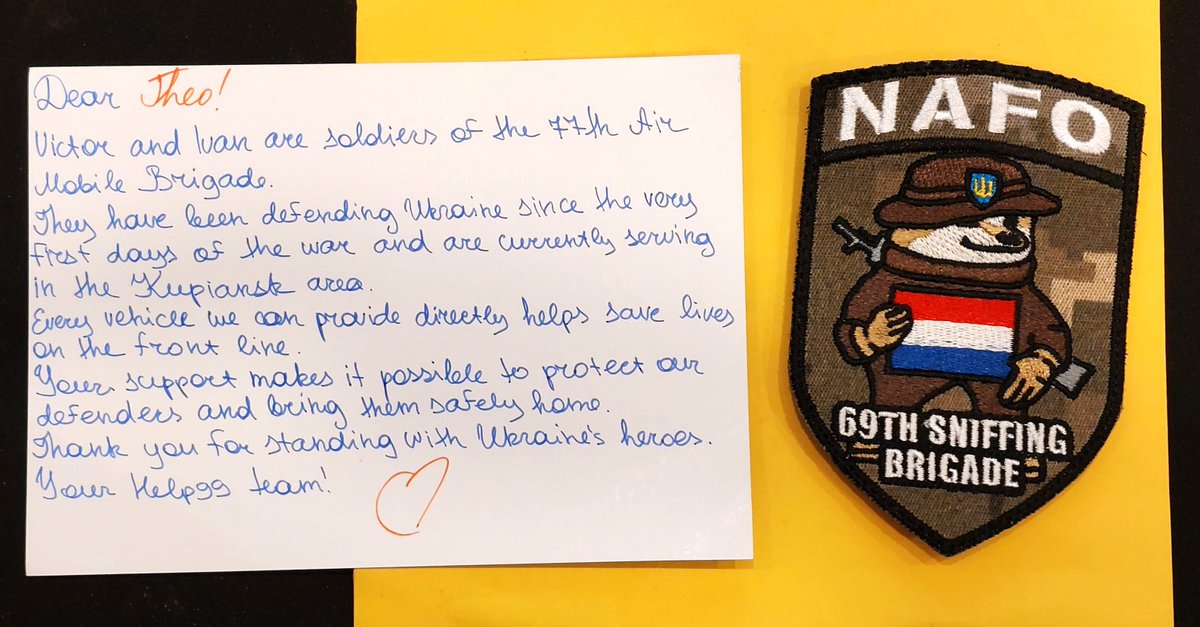 Dear Theo!
Victor and Ivan are soldiers of the 77th Air
Mobile Brigade.
They have been defending Ukraine since the very
first days of the war and are currently serving
in the Kupiansk area.
Every vehicle we can provide directly helps save lives
on the front line.
Your support makes it possible to protect our
defenders and bring them safely home.
Thank you for standing with Ukraine's heroes.
Your Help99 team!
NAFO
69TH SNIFFING
BRIGADE